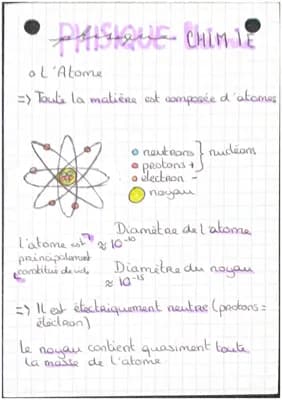 PHISIQUE CHIMIE
physique CHIMIE
o L'Atome
=> Toute la matière est composée d'atomes
o neutrons } nucléons
o protons +
o électron -
noyau
Diamètre de l'atome
≈ 10⁻¹⁰
L'atome est
principalement
constitué de vide
Diamètre du noyau
≈ 10⁻¹⁵
=> Il est électriquement neutre (protons =
électron)
Le noyau contient quasiment toute
la masse de l'atome